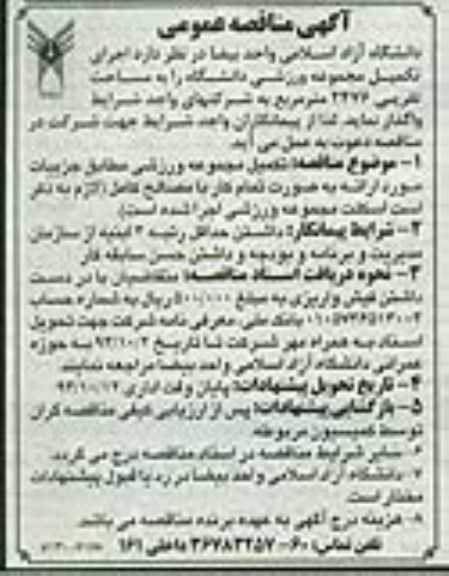 آگهی مناقصه عمومی
دانشگاه آزاد اسلامی واحد بیضا در نظر دارد اجرای
تکمیل مجموعه ورزشی دانشگاه را به مساحت
تقریبی ۲۲۷۶ مترمربع به شرکتهای واجد شرایط
واگذار نماید. لذا از پیمانکاران واجد شرایط جهت شرکت در
مناقصه دعوت به عمل می آید.
۱- موضوع مناقصه: تکمیل مجموعه ورزشی مطابق جزییات
مورد ارائه به صورت تمام کار با مصالح کامل (لازم به ذکر
است اسکلت مجموعه ورزشی اجرا شده است).
۲- شرایط پیمانکار: داشتن حداقل رتبه ۴ ابنیه از سازمان
مدیریت و برنامه و بودجه و داشتن حسن سابقه کار
۳- نحوه دریافت اسناد مناقصه: متقاضیان با در دست
داشتن فیش واریزی به مبلغ ۵۰۰/۰۰۰ ریال به شماره حساب
بانک ملی، معرفی نامه شرکت جهت تحویل
اسناد به همراه مهر شرکت تا تاریخ به حوزه
عمرانی دانشگاه آزاد اسلامی واحد بیضا مراجعه نمایند.
۴- تاریخ تحویل پیشنهادات: پایان وقت اداری ۹۳/۱۰/۱۲
۵- بازگشایی پیشنهادات: پس از ارزیابی کیفی مناقصه گران
توسط کمیسیون مربوطه.
۶- سایر شرایط مناقصه در اسناد مناقصه درج می گردد.
۷- دانشگاه آزاد اسلامی واحد بیضا در رد یا قبول پیشنهادات
مختار است.
۸- هزینه درج آگهی به عهده برنده مناقصه می باشد.
تلفن تماس: ۶۰-۳۶۷۸۳۲۵۷ داخلی ۱۶۱